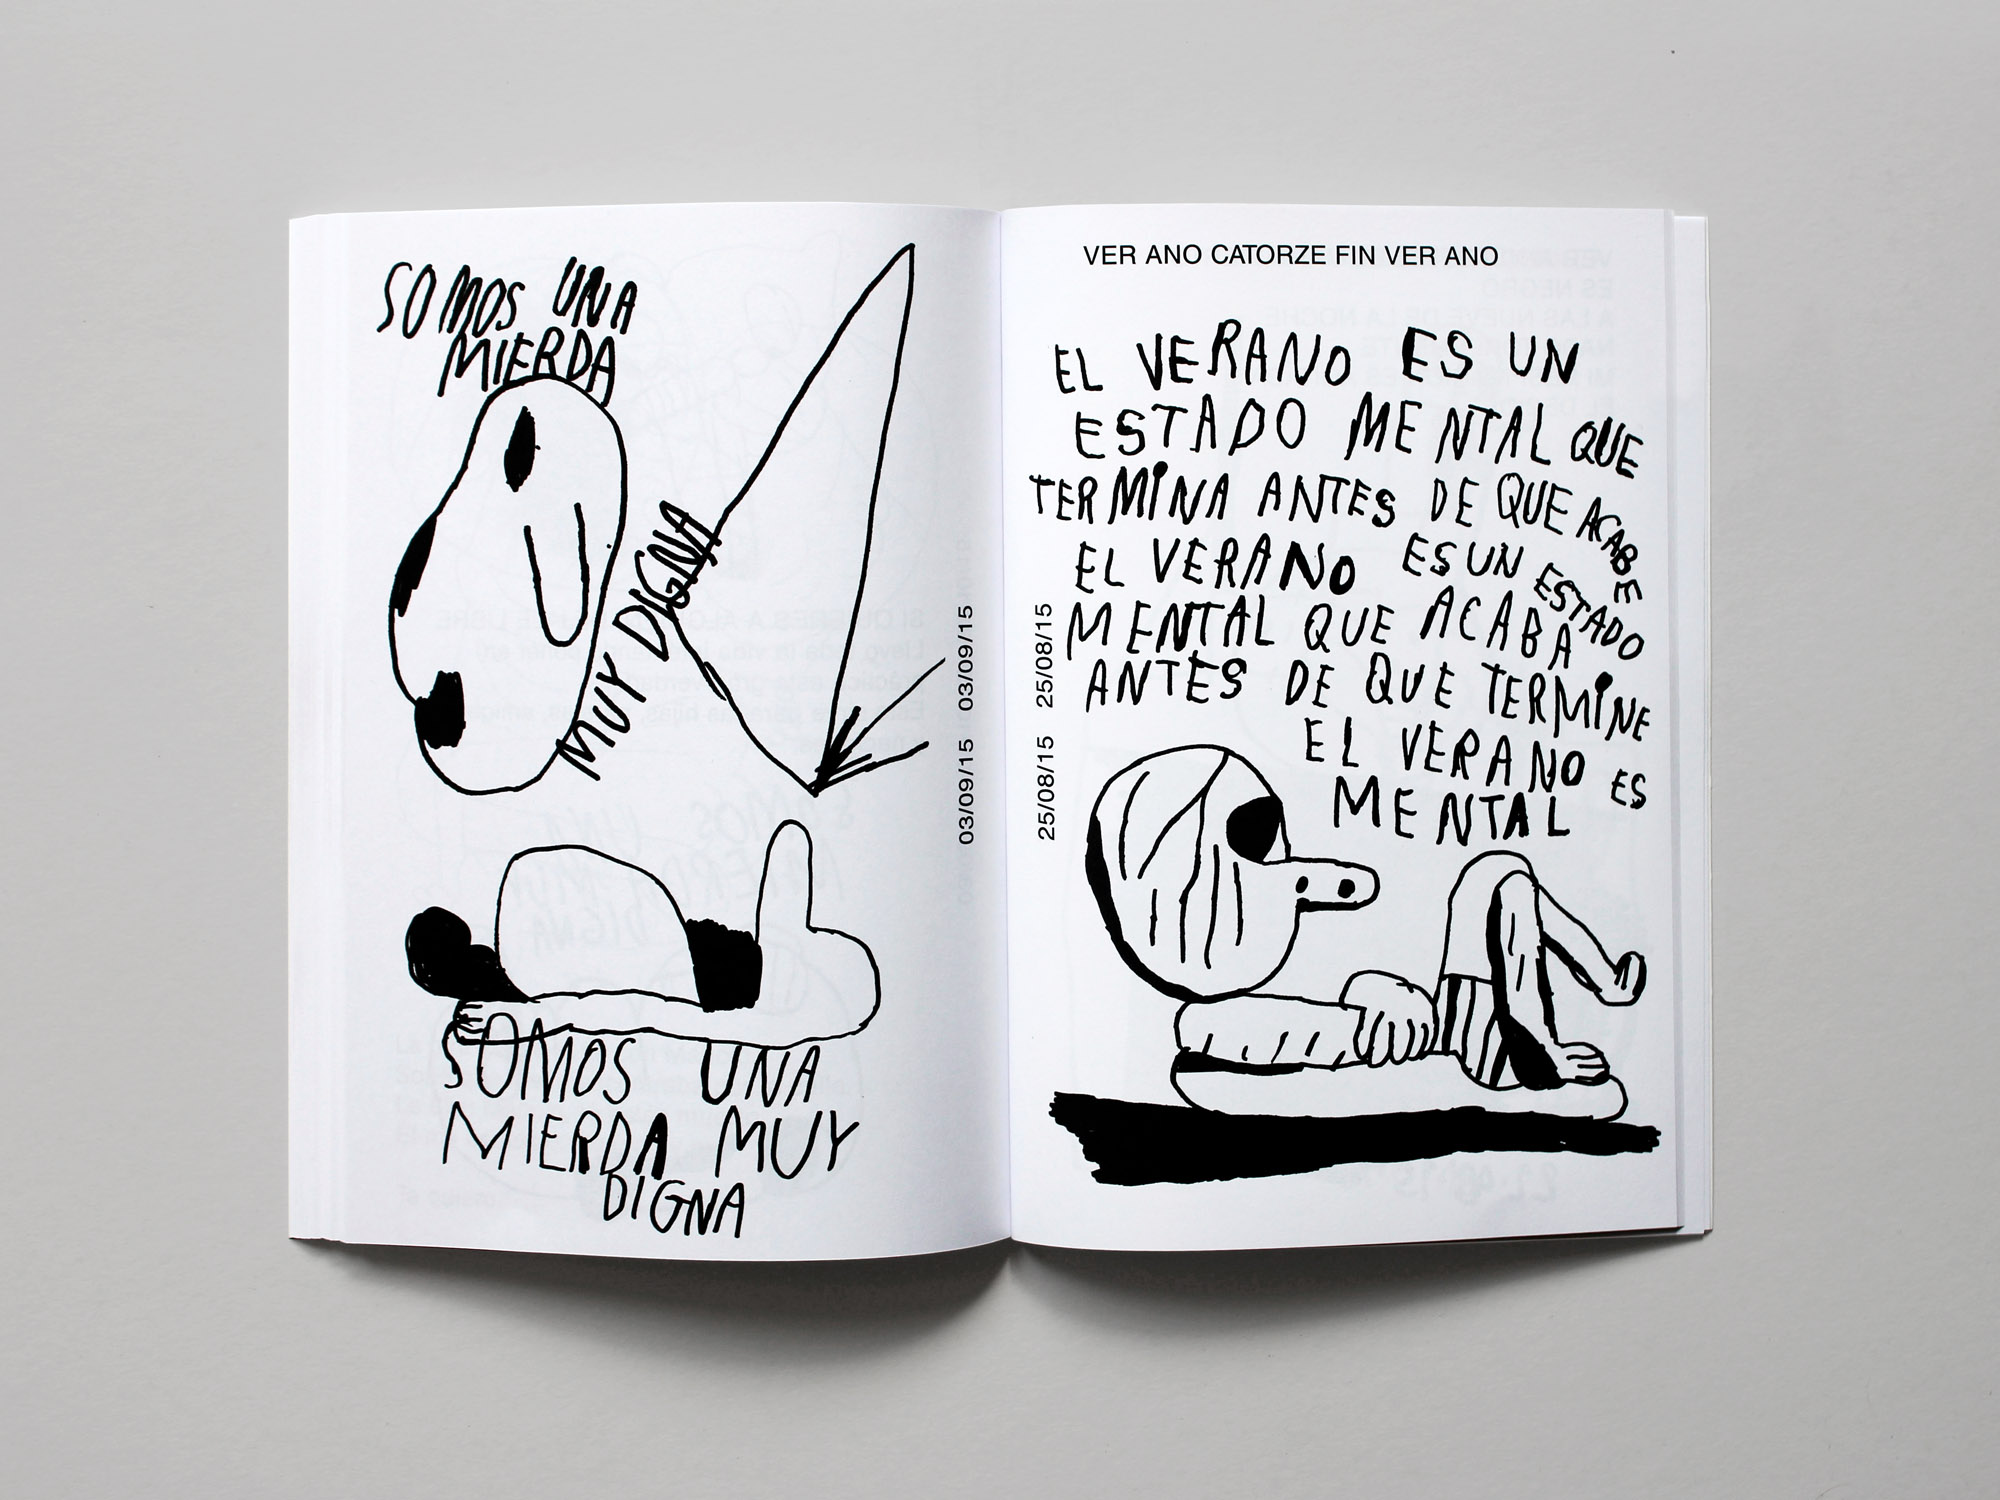 SOMOS UNA
MIERDA
MUY DIGNA
SOMOS UNA
MIERDA MUY
DIGNA
03/09/15 03/09/15
25/08/15 25/08/15
VER ANO CATORZE FIN VER ANO
EL VERANO ES UN
ESTADO MENTAL QUE
TERMINA ANTES DE QUE ACABE
EL VERANO ES UN ESTADO
MENTAL QUE ACABA
ANTES DE QUE TERMINE
EL VERANO ES
MENTAL